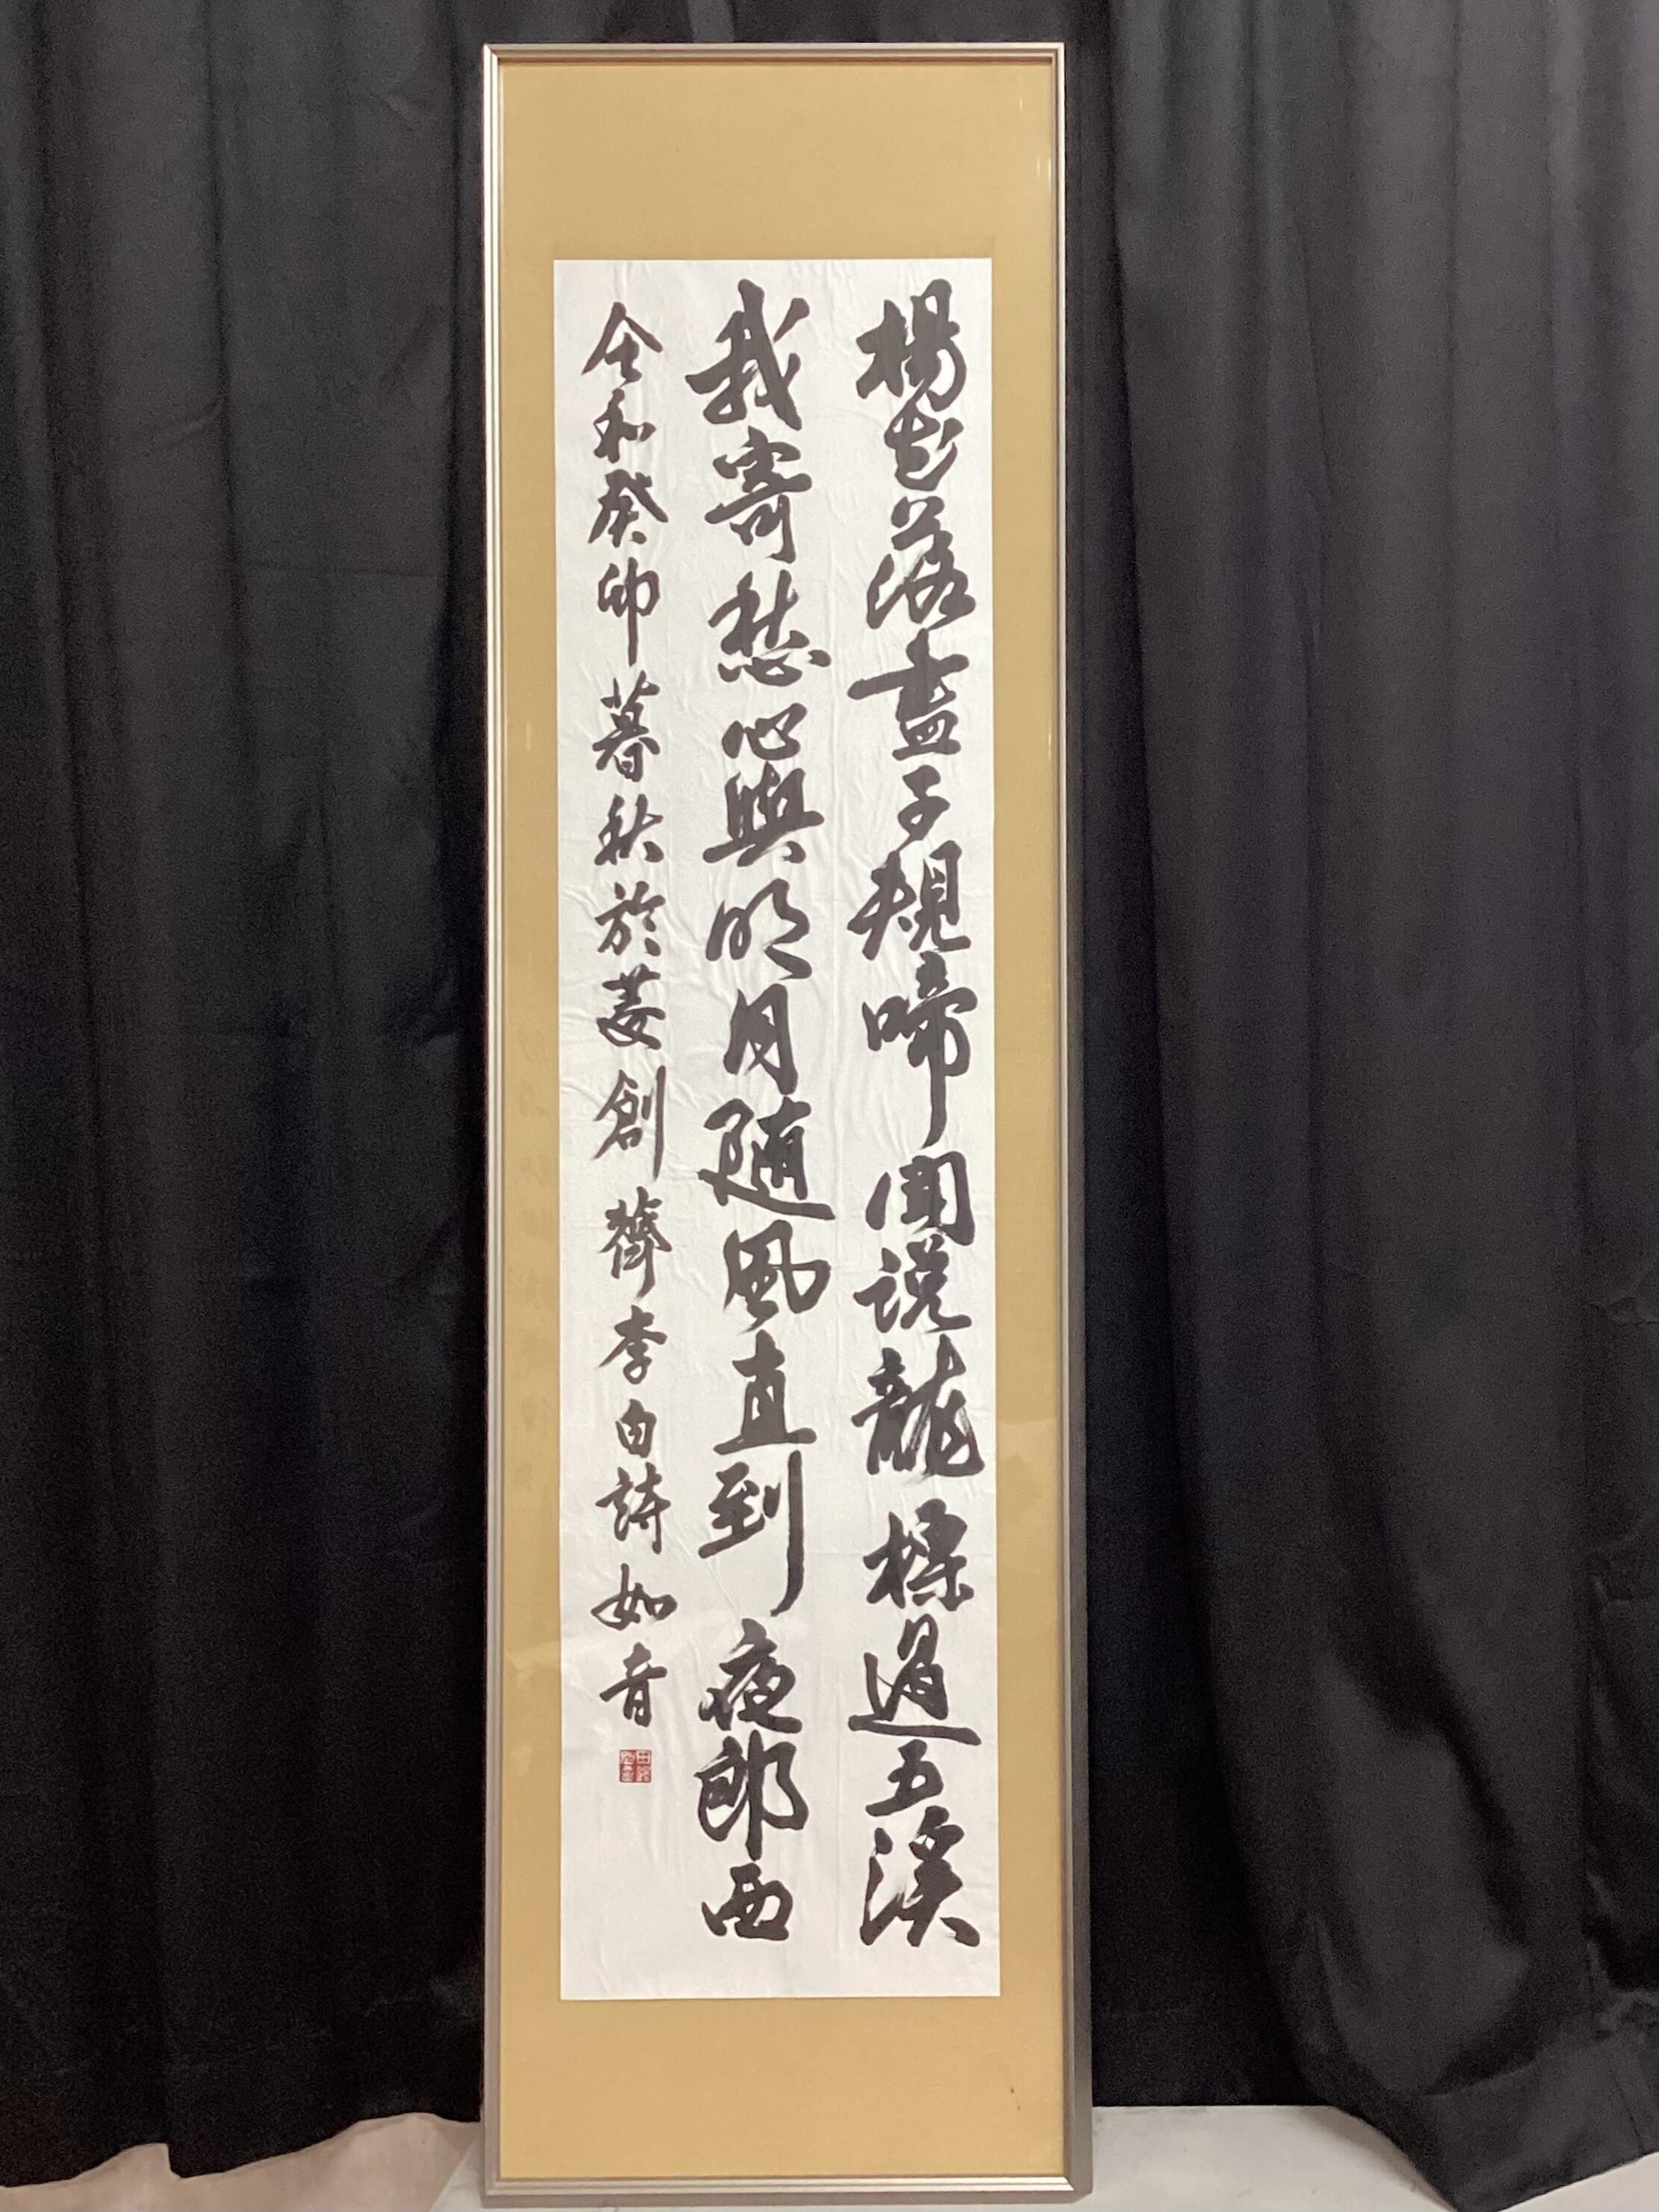 楊花落盡子規啼聞説龍標過五溪
我寄愁心與明月随風直到夜郎西
令和癸卯暮秋於菱創齊李白詩如音